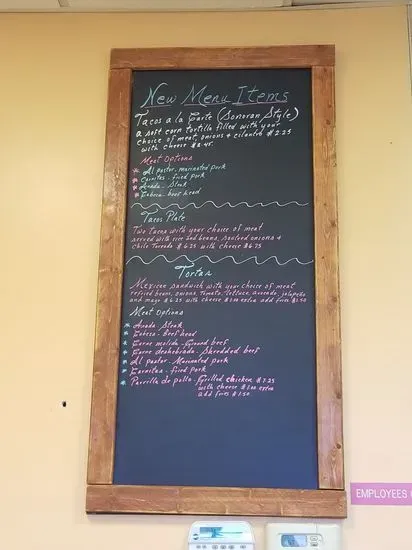 New Menu Items
Tacos a la Carte (Sonoran Style)
a soft corn tortilla filled with your
choice of meat, onions & cilantro $2.25
with cheese $2.45.
Meat Options
* Al pastor - marinated pork
* Carnitas - fried pork
* Asada - Steak
* Cabeza - beef head
Tacos Plate
Two tacos with your choice of meat
served with rice and beans, sauteed onions &
chile Toreado $6.25 with cheese $6.75
Tortas
Mexican sandwich with your choice of meat
refried beans, onions, Tomato, lettuce, avocado, jalapeño
and mayo $6.25 with cheese $1.00 extra add fries $1.50
Meat Options
* Asada Steak
* Cabeza - Beef head
* Carne molida - Ground beef
* Carne deshebrada - Shredded beef
* Al pastor - Marinated pork
* Carnitas - fried pork
* Parrilla de pollo - Grilled chicken $7.25
with cheese $1.00 extra
add fries $1.50
EMPLOYEES